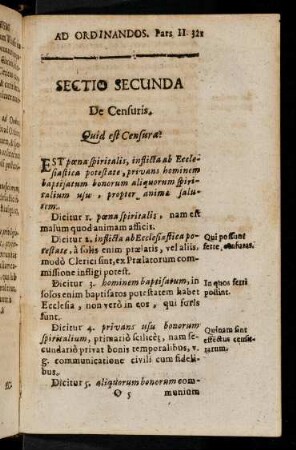 AD ORDINANDOS. Pars II. 321
SECTIO SECUNDA
De Censuris.
Quid est Censura?
EST pœna spiritalis, inflicta ab Eccle-
siastica potestate, privans hominem
baptisatum bonorum aliquorum spiri-
ritalium usu, propter animæ salu-
tem.
Dicitur 1. pœna spiritalis, nam est
malum quod animam afficit.
Dicitur 2. inflicta ab Ecclesiastica po-
testate, à solis enim prælaris, vel aliis,
modò Clerici sint, ex Prælatorum com-
missione infligi potest.
Qui possunt
ferre censuras.
Dicitur 3. hominem baptisatum, in
solos enim baptisatos potestatem habet
Ecclesia, non verò in eos, qui foris
sunt.
In quos ferri
possint.
Dicitur 4. privans usu bonorum
spiritalium, primariò scilicet, nam se-
cundariò privat bonis temporalibus, v.
g. communicatione civili cum fideli-
bus.
Quinam sint
effectus censu-
rarum.
Dicitur 5. aliquorum bonorum com-
O 5 munium